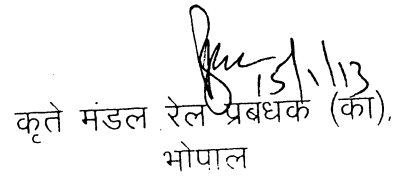 15/1/13
कृते मंडल रेल प्रबधक (का).
भोपाल